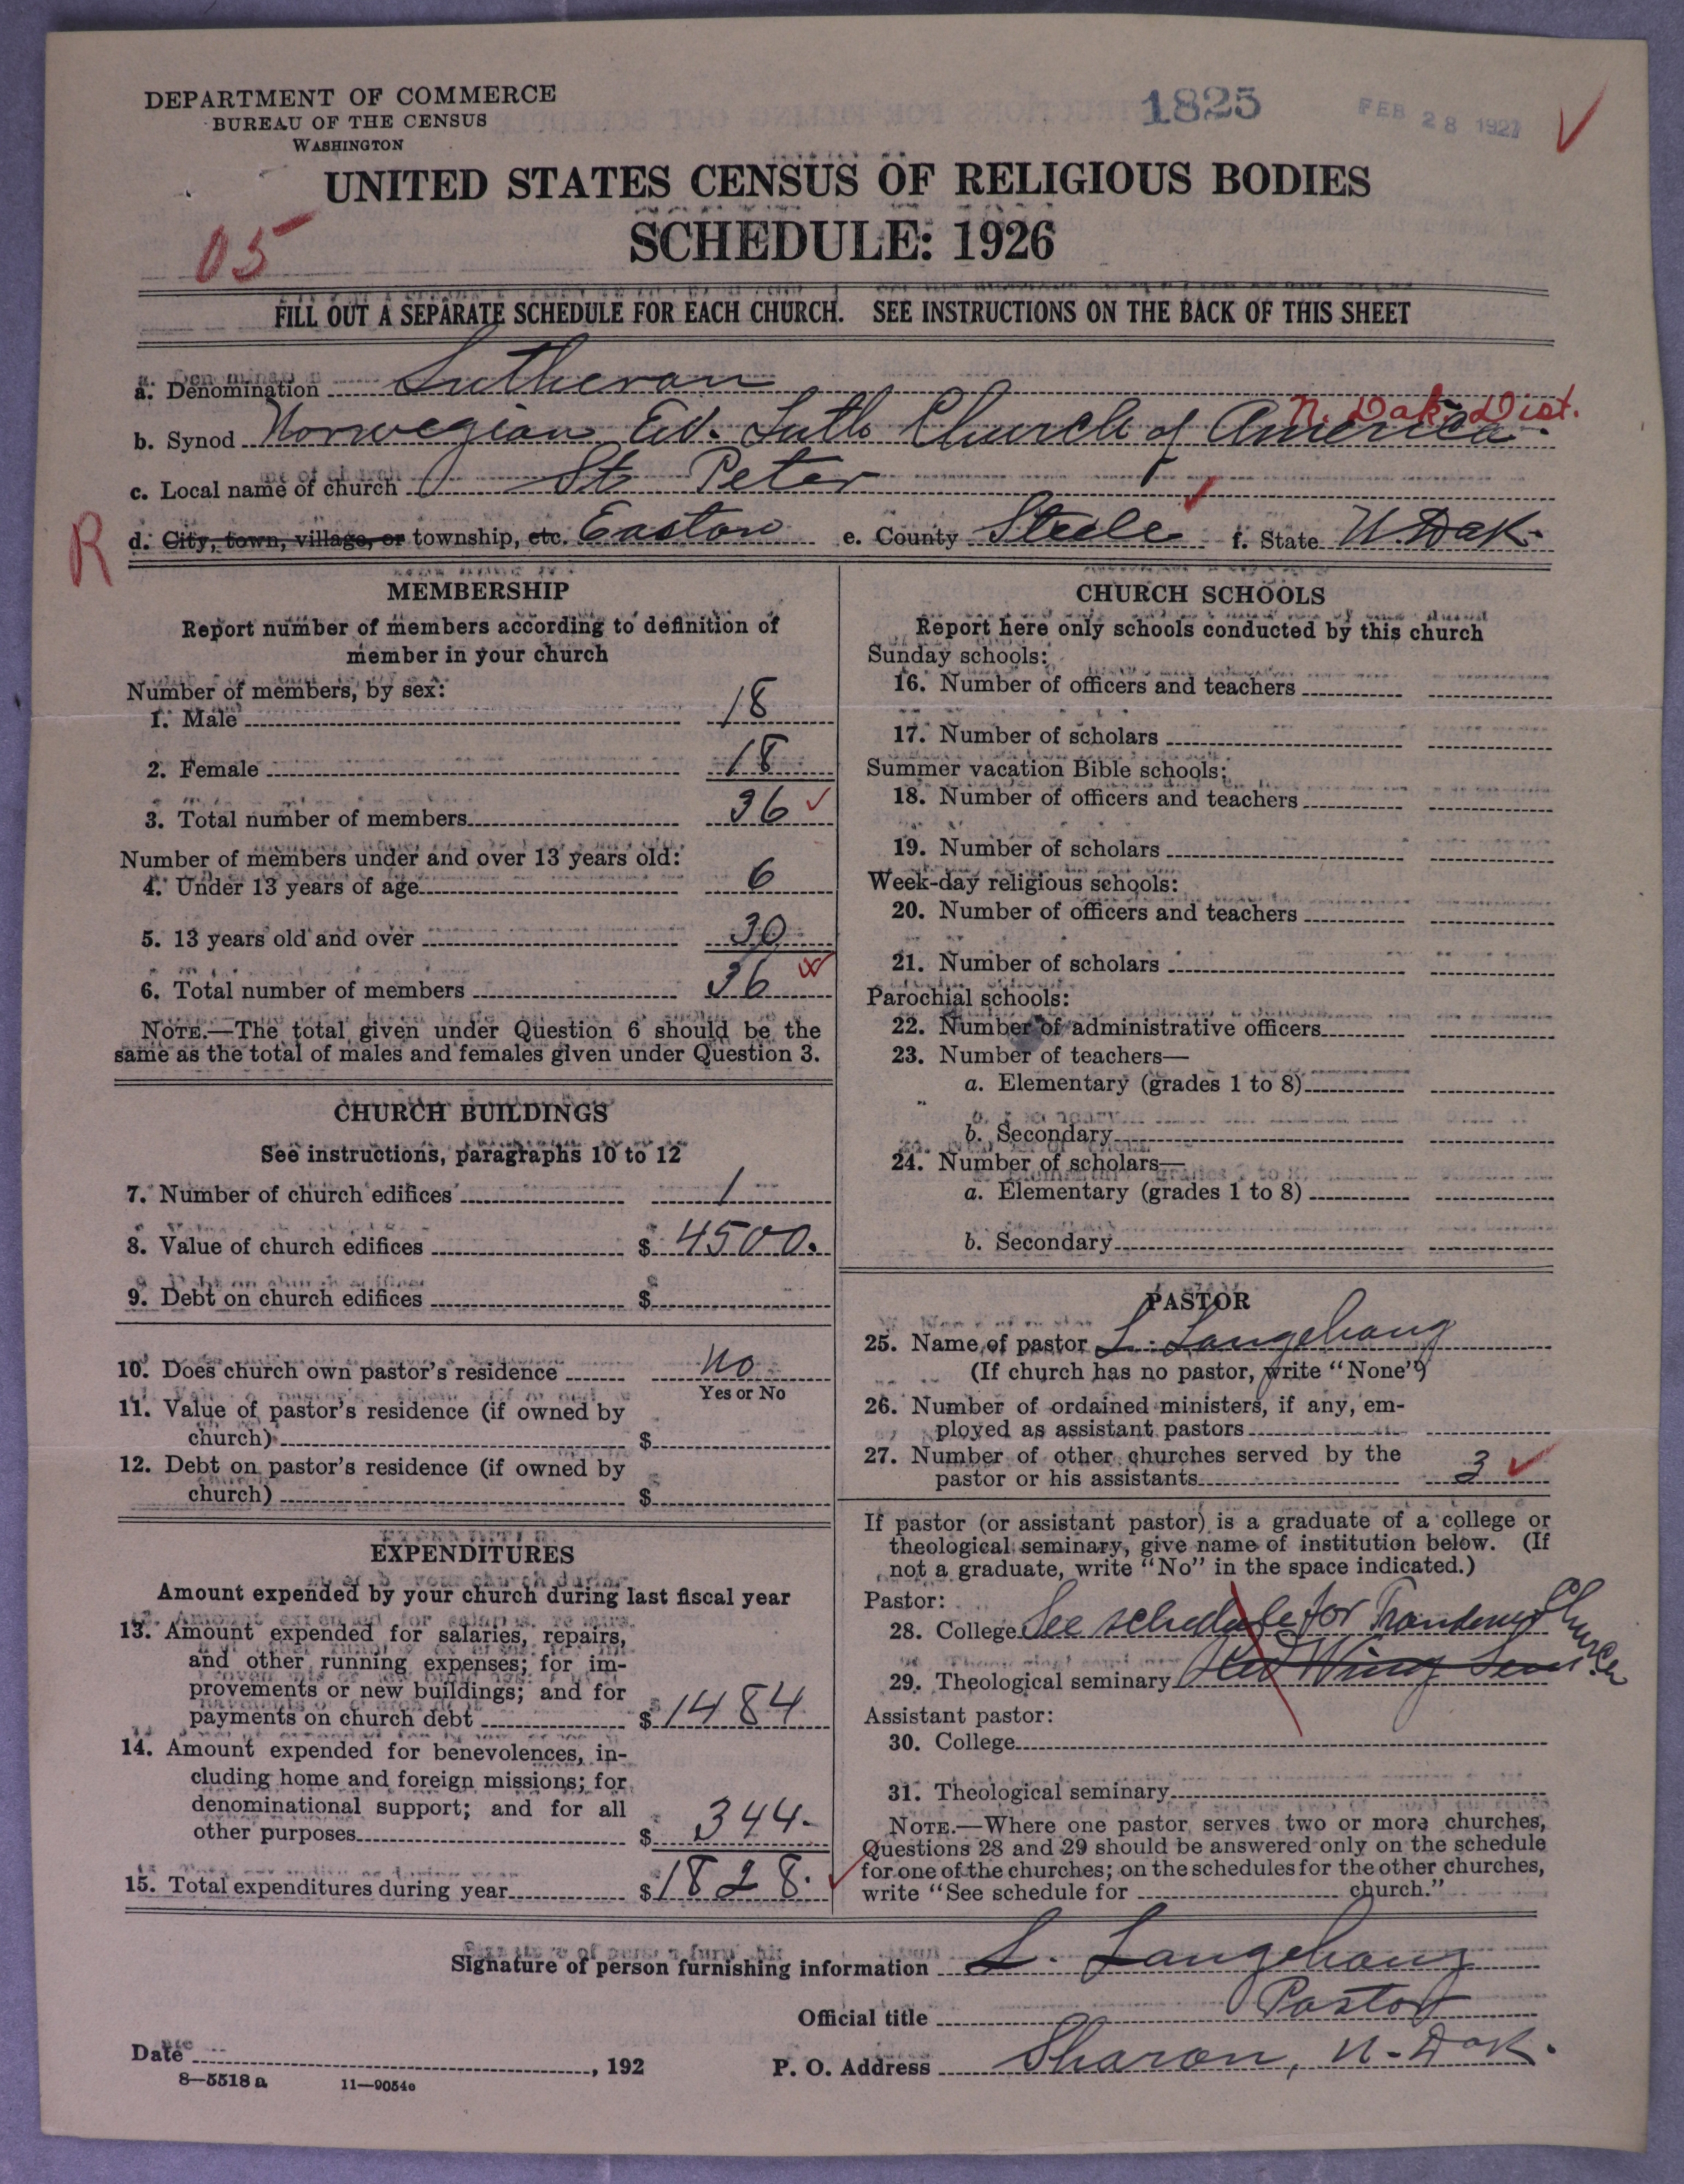 DEPARTMENT OF COMMERCE
BUREAU OF THE CENSUS
WASHINGTON
1825
FEB 28 1927
UNITED STATES CENSUS OF RELIGIOUS BODIES
SCHEDULE: 1926
05
FILL OUT A SEPARATE SCHEDULE FOR EACH CHURCH. SEE INSTRUCTIONS ON THE BACK OF THIS SHEET
a. Denomination Lutheran
N. Dak. Dist.
b. Synod Norwegian Ev. Luth Church of America.
c. Local name of church St Peter
R
d. City, town, village, or township, etc. Easton e. County Steele f. State N. Dak.
MEMBERSHIP
Report number of members according to definition of
member in your church
Number of members, by sex:
1. Male 18
2. Female 18
3. Total number of members 36
Number of members under and over 13 years old:
4. Under 13 years of age 6
5. 13 years old and over 30
6. Total number of members 36
NOTE.—The total given under Question 6 should be the
same as the total of males and females given under Question 3.
CHURCH BUILDINGS
See instructions, paragraphs 10 to 12
7. Number of church edifices 1
8. Value of church edifices $ 4500.
9. Debt on church edifices $
10. Does church own pastor's residence No
Yes or No
11. Value of pastor's residence (if owned by
church) $
12. Debt on pastor's residence (if owned by
church) $
EXPENDITURES
Amount expended by your church during last fiscal year
13. Amount expended for salaries, repairs,
and other running expenses; for im-
provements or new buildings; and for
payments on church debt $ 1484
14. Amount expended for benevolences, in-
cluding home and foreign missions; for
denominational support; and for all
other purposes $ 344.
15. Total expenditures during year $ 1828.
CHURCH SCHOOLS
Report here only schools conducted by this church
Sunday schools:
16. Number of officers and teachers
17. Number of scholars
Summer vacation Bible schools:
18. Number of officers and teachers
19. Number of scholars
Week-day religious schools:
20. Number of officers and teachers
21. Number of scholars
Parochial schools:
22. Number of administrative officers
23. Number of teachers—
a. Elementary (grades 1 to 8)
b. Secondary
24. Number of scholars—
a. Elementary (grades 1 to 8)
b. Secondary
PASTOR
25. Name of pastor L. Langehaug
(If church has no pastor, write "None")
26. Number of ordained ministers, if any, em-
ployed as assistant pastors
27. Number of other churches served by the
pastor or his assistants 3
If pastor (or assistant pastor) is a graduate of a college or
theological seminary, give name of institution below. (If
not a graduate, write "No" in the space indicated.)
Pastor:
28. College See schedule for Church
29. Theological seminary Red Wing Sem
Assistant pastor:
30. College
31. Theological seminary
NOTE.—Where one pastor serves two or more churches,
Questions 28 and 29 should be answered only on the schedule
for one of the churches; on the schedules for the other churches,
write "See schedule for church."
Signature of person furnishing information L. Langehaug
Official title Pastor
Date , 192
P. O. Address Sharon, N. Dak.
8—5518 a 11—9054c